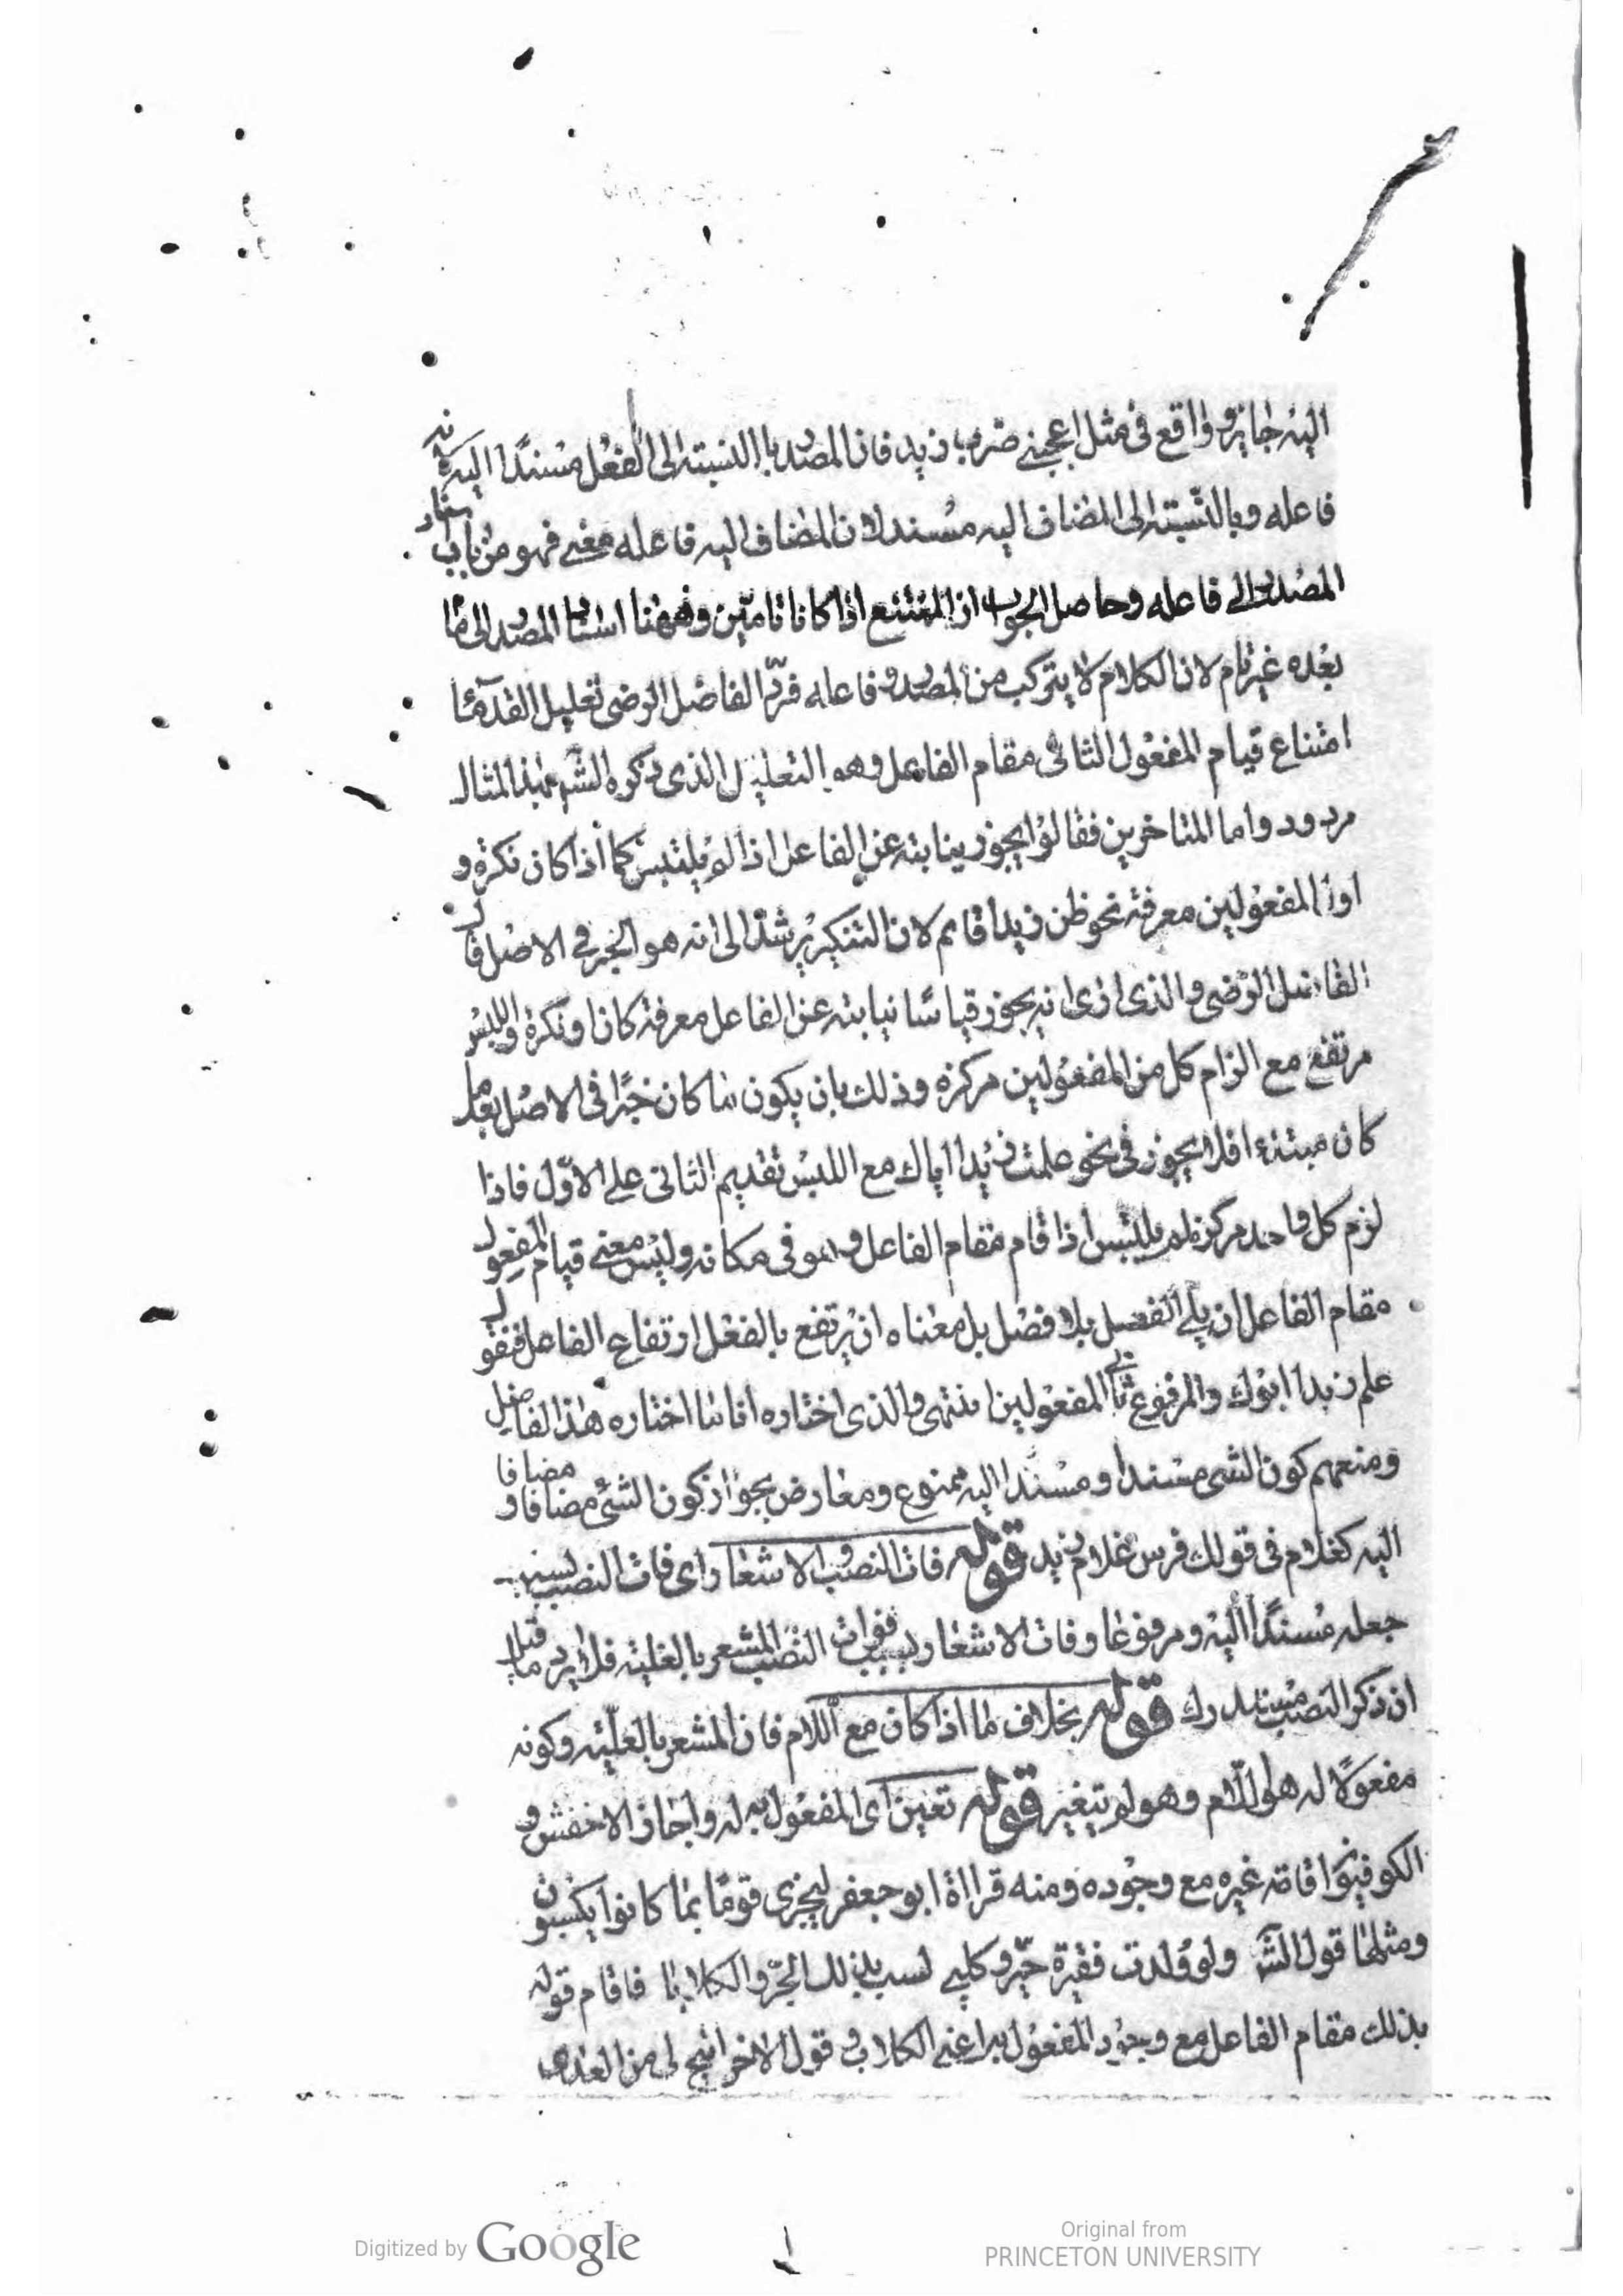 اليه جايز وواقع فى مثل اعجبنى ضرب زيد فان المصدر بالنسبته الى الفعل مسندًا اليه لانه
فاعله وبالنسبته الى المضاف اليه مسند لان المضاف اليه فاعله معنى فهو من باب اسناد
المصدر الى فاعله وحاصل الجواب ان الممتنع اذا كانا تامين وههنا اسناد المصدر الى ما
بعده غير تام لان الكلام لا يتركب من المصدر وفاعله فردّ الفاضل الرضى تعليل القدمآء
امتناع قيام المفعول الثانى مقام الفاعل وهو التعليل الذى ذكره الشم بهذا المثال
مردود واما المتاخرين فقالوا يجوز ينابته عن الفاعل اذا لم يلتبس كما اذا كان نكرة و
اول المفعولين معرفة نحو ظن زيدا قايم لان التنكير يرشد الى انه هو الخبر فى الاصل قال
الفاضل الرضى والذى ارى انه يجوز قياسًا نيابته عن الفاعل معرفة كان او نكرة واللبس
مرتفع مع الزام كل من المفعولين مركزه وذلك بان يكون ما كان خبرًا فى الاصل بعد ما
كان مبتدء افلا يجوز فى نحو علمت زيدا اباك مع اللبس تقديم الثانى على الاوّل فاذا
لزم كل واحد مركزه لم يلتبس اذا قام مقام الفاعل وهو فى مكانه وليس معنى قيام المفعول
مقام الفاعل ان يلى الفعل بلا فصل بل معناه ان يرتفع بالفعل ارتفاع الفاعل فنقول
علم زيدا ابوك والمرفوع ثانى المفعولين انتهى والذى اختاره انا ما اختاره هذا الفاضل
ومنعهم كون الشى مسندا ومسندا اليه ممنوع ومعارض بجواز كون الشئ مضافا و مضافا
اليه كغلام فى قولك فرس غلام زيد قوله فات النصب والاشعار اى فات النصب بسبب
جعله مسندًا اليه ومرفوعا وفات الاشعار بسبب فوات النصب المشعر بالعلية فلا يرد ما قيل
ان ذكر النصب مستدرك قوله بخلاف ما اذا كان مع اللام فان المشعر بالعلّيته وكونه
مفعولًا له هو اللّام وهو لم يتغير قوله تعين اى المفعول به له واجاز الاخفش و
الكوفيون اقامته غيره مع وجوده ومنه قرااة ابو جعفر ليجزى قومًا بما كانوا يكسبون
ومثلها قول الشر ولو ولدت فقيرة جرو كلب لسب بذلك الجرو الكلابا فاقام قوله
بذلك مقام الفاعل مع وجود المفعول به اعنى الكلاب وقول الاخر اتيح لى من العدى
Digitized by Google
Original from
PRINCETON UNIVERSITY